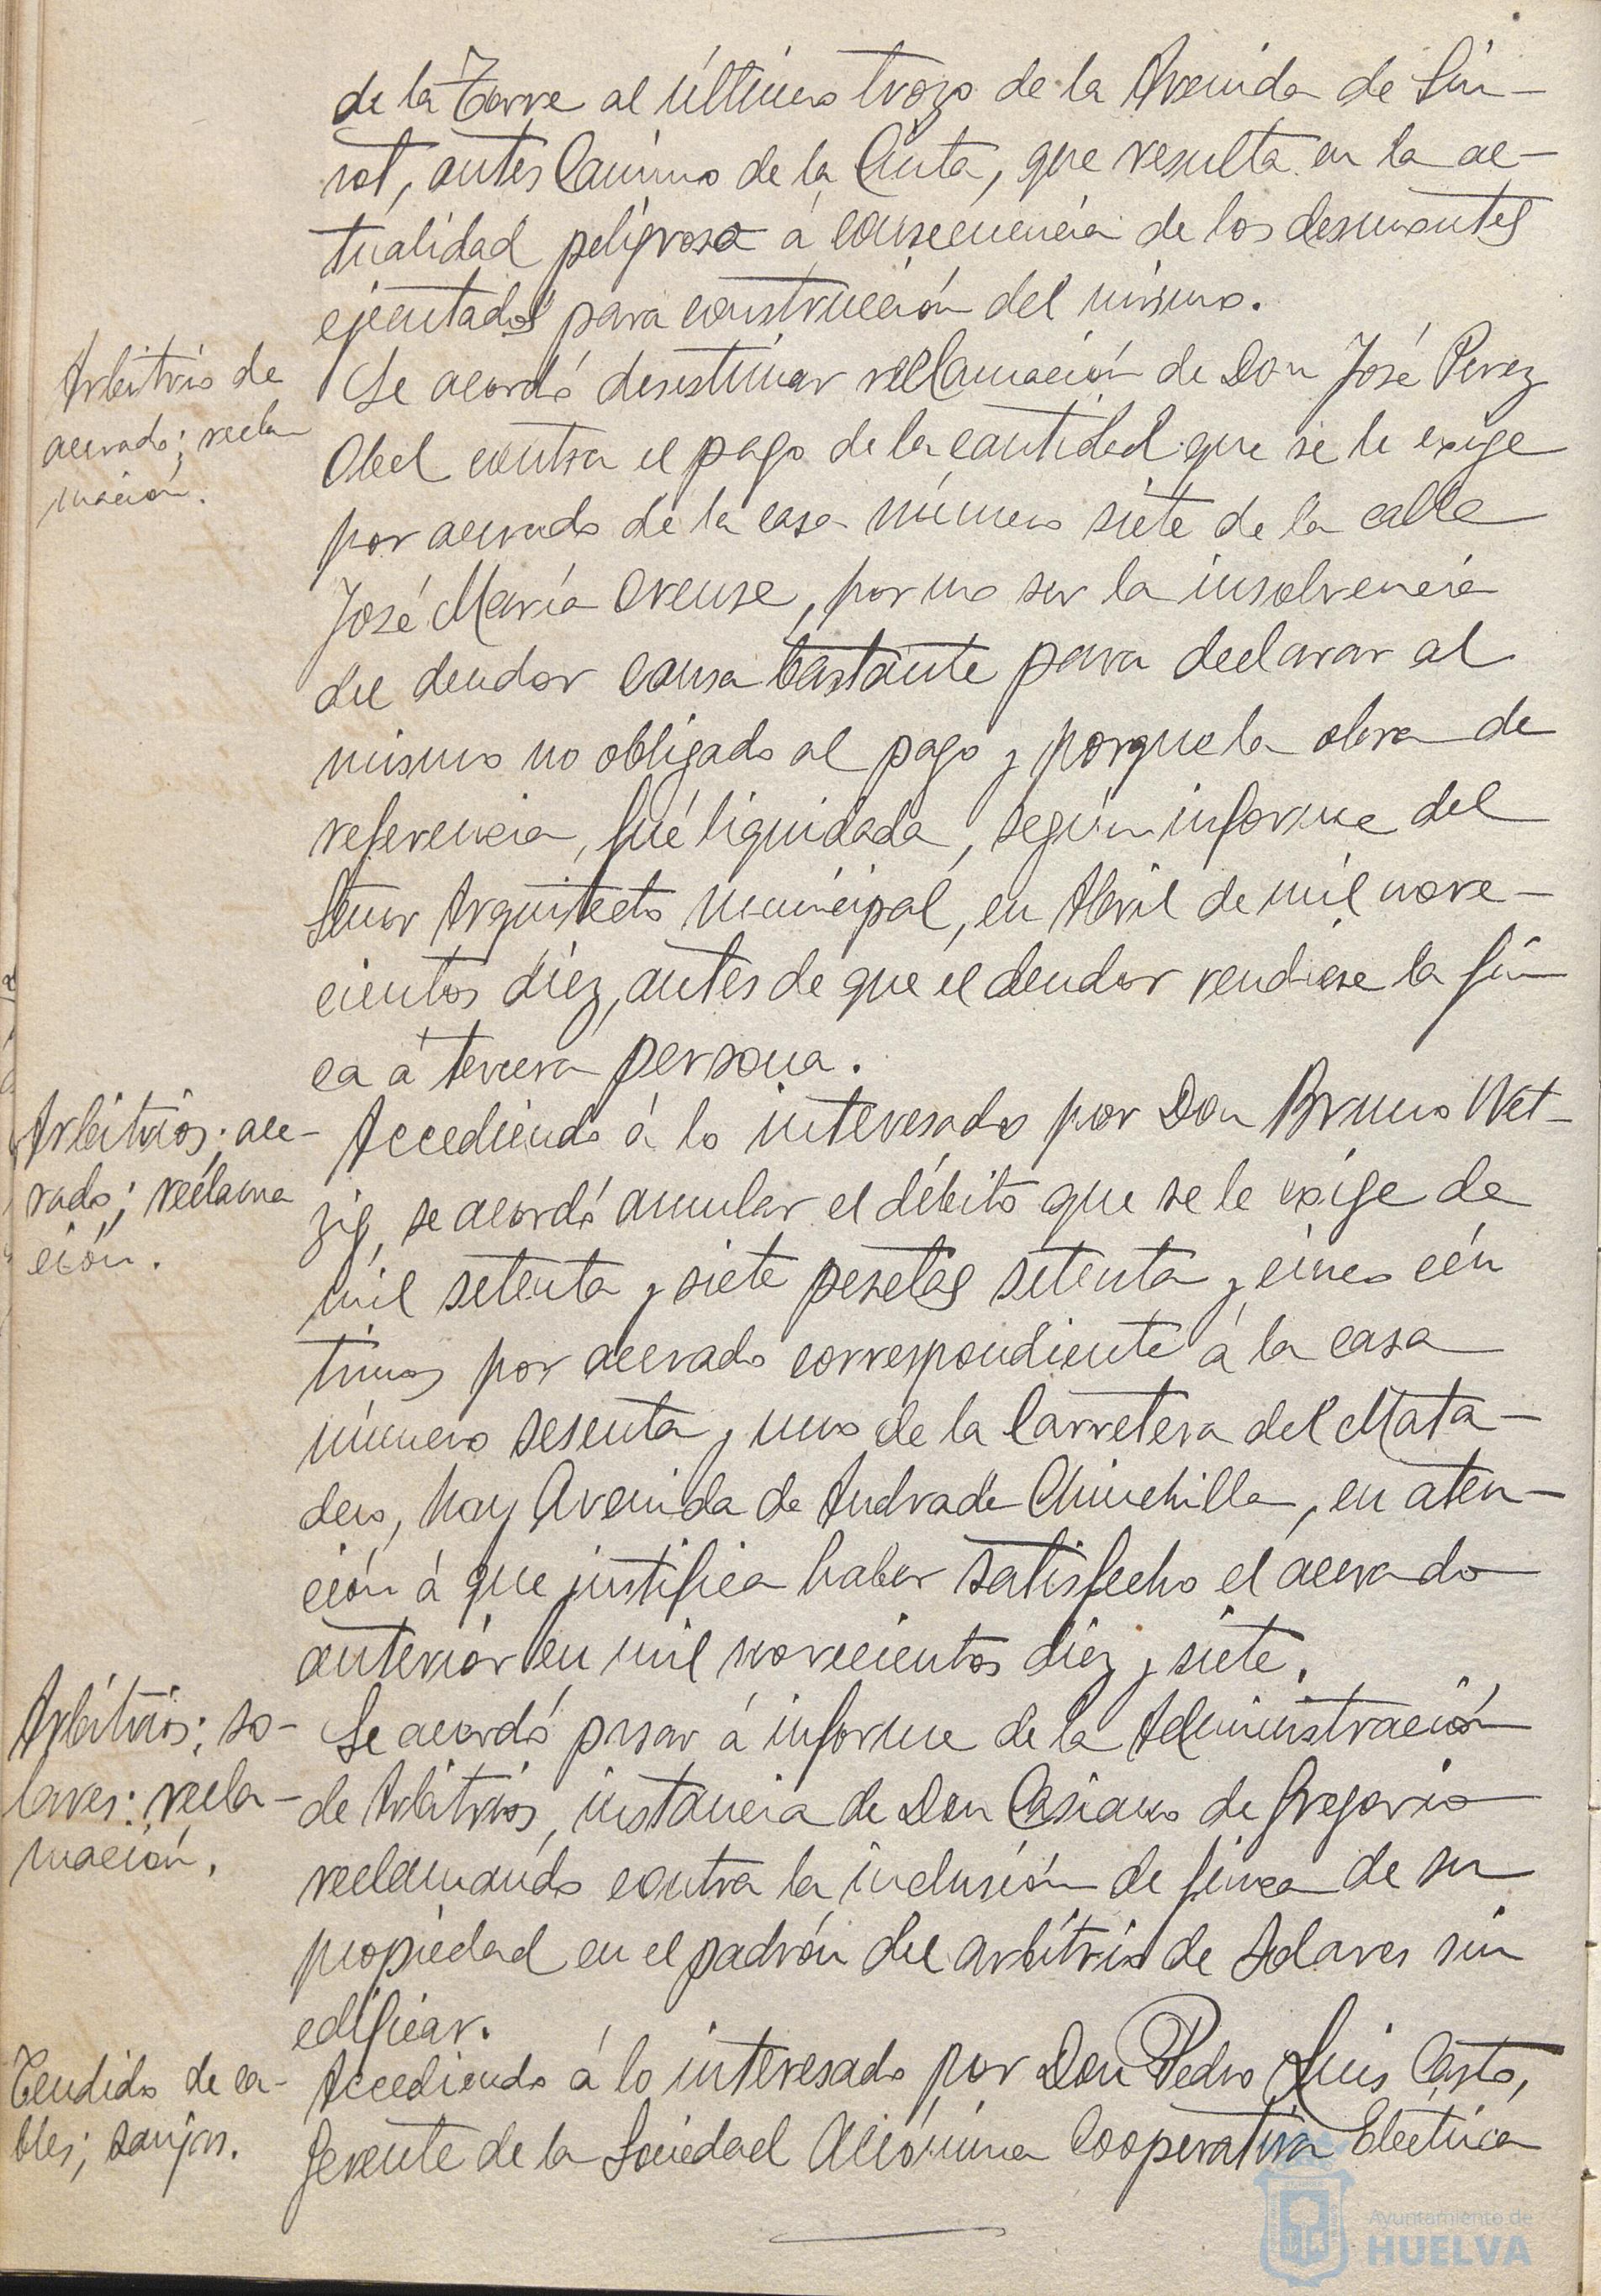 de la Torre al último trozo de la Avenida de Sün-
rot, antes Camino de la Cinta, que resulta en la ac-
tualidad peligrosa á consecuencia de los desmontes
ejecutados para construcción del mismo.
Arbitrio de
acerado; recla
mación.
Se acordó desestimar reclamación de Don José Perez
Abel contra el pago de la cantidad que se le exige
por acerado de la casa número siete de la calle
José María Orense, por no ser la insolvencia
del deudor causa bastante para declarar al
mismo no obligado al pago y porque la obra de
referencia, fué liquidada, según informe del
Señor Arquitecto municipal, en Abril de mil nove-
cientos diez, antes de que el deudor vendiese la fin
ca á tercera persona.
Arbitrios; ace-
rado; reclama
ción.
Accediendo á lo interesado por Don Bruno Wet-
zig, se acordó anular el débito que se le exige de
mil setenta y siete pesetas setenta y cinco cén
timos por acerado correspondiente á la casa
número sesenta y uno de la Carretera del Mata-
dero, hoy Avenida de Andrade Chinchilla, en aten-
ción á que justifica haber satisfecho el acerado
anterior en mil novecientos diez y siete.
Arbitrios; so-
lares: recla-
mación.
Se acordó pasar á informe de la Administración
de Arbitrios, instancia de Don Casiano de Gregorio
reclamando contra la inclusión de finca de su
propiedad en el padrón del arbitrio de Solares sin
edificar.
Tendido de ca-
bles; zanjas.
Accediendo á lo interesado por Don Pedro Luis Casto,
Gerente de la Sociedad Anónima Cooperativa Electrica
Ayuntamiento de
HUELVA